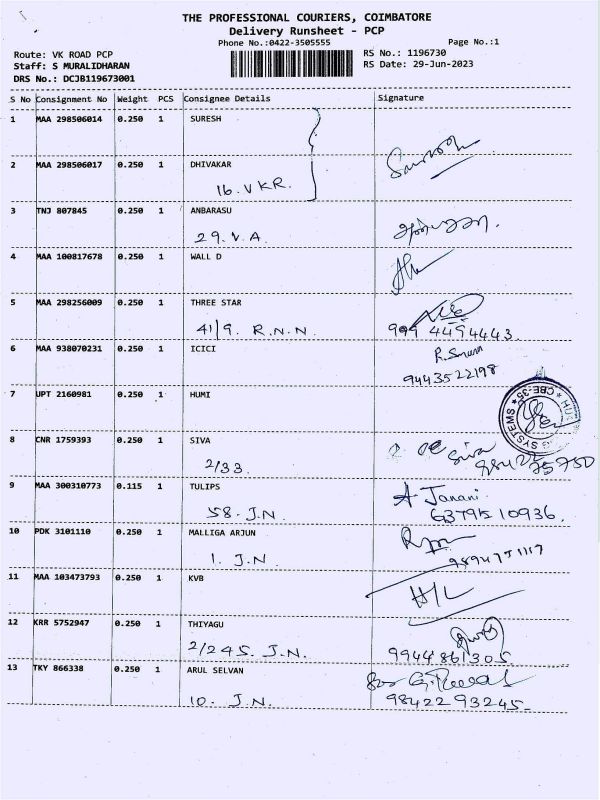 THE PROFESSIONAL COURIERS, COIMBATORE
Delivery Runsheet - PCP
Phone No.:0422-3505555 Page No.:1
Route: VK ROAD PCP RS No.: 1196730
Staff: S MURALIDHARAN RS Date: 29-Jun-2023
DRS No.: DCJB119673001
S No Consignment No Weight PCS Consignee Details Signature
1 MAA 298506014 0.250 1 SURESH
2 MAA 298506017 0.250 1 DHIVAKAR
16. VKR.
3 TNJ 807845 0.250 1 ANBARASU
29. V.A.
4 MAA 100817678 0.250 1 WALL D
5 MAA 298256009 0.250 1 THREE STAR
41/9. R.N.N. 999 4494443
6 MAA 938070231 0.250 1 ICICI
9443522198
7 UPT 2160981 0.250 1 HUMI
CBE-35
SYSTEMS
8 CNR 1759393 0.250 1 SIVA
2/33. Siva
98422 75750
9 MAA 300310773 0.115 1 TULIPS A Janani
58. J.N. 6379510936.
10 PDK 3101110 0.250 1 MALLIGA ARJUN
1. J.N
11 MAA 103473793 0.250 1 KVB H/L
12 KRR 5752947 0.250 1 THIYAGU
2/245. J.N. 9944861305
13 TKY 866338 0.250 1 ARUL SELVAN
10. J.N. 98422 93245